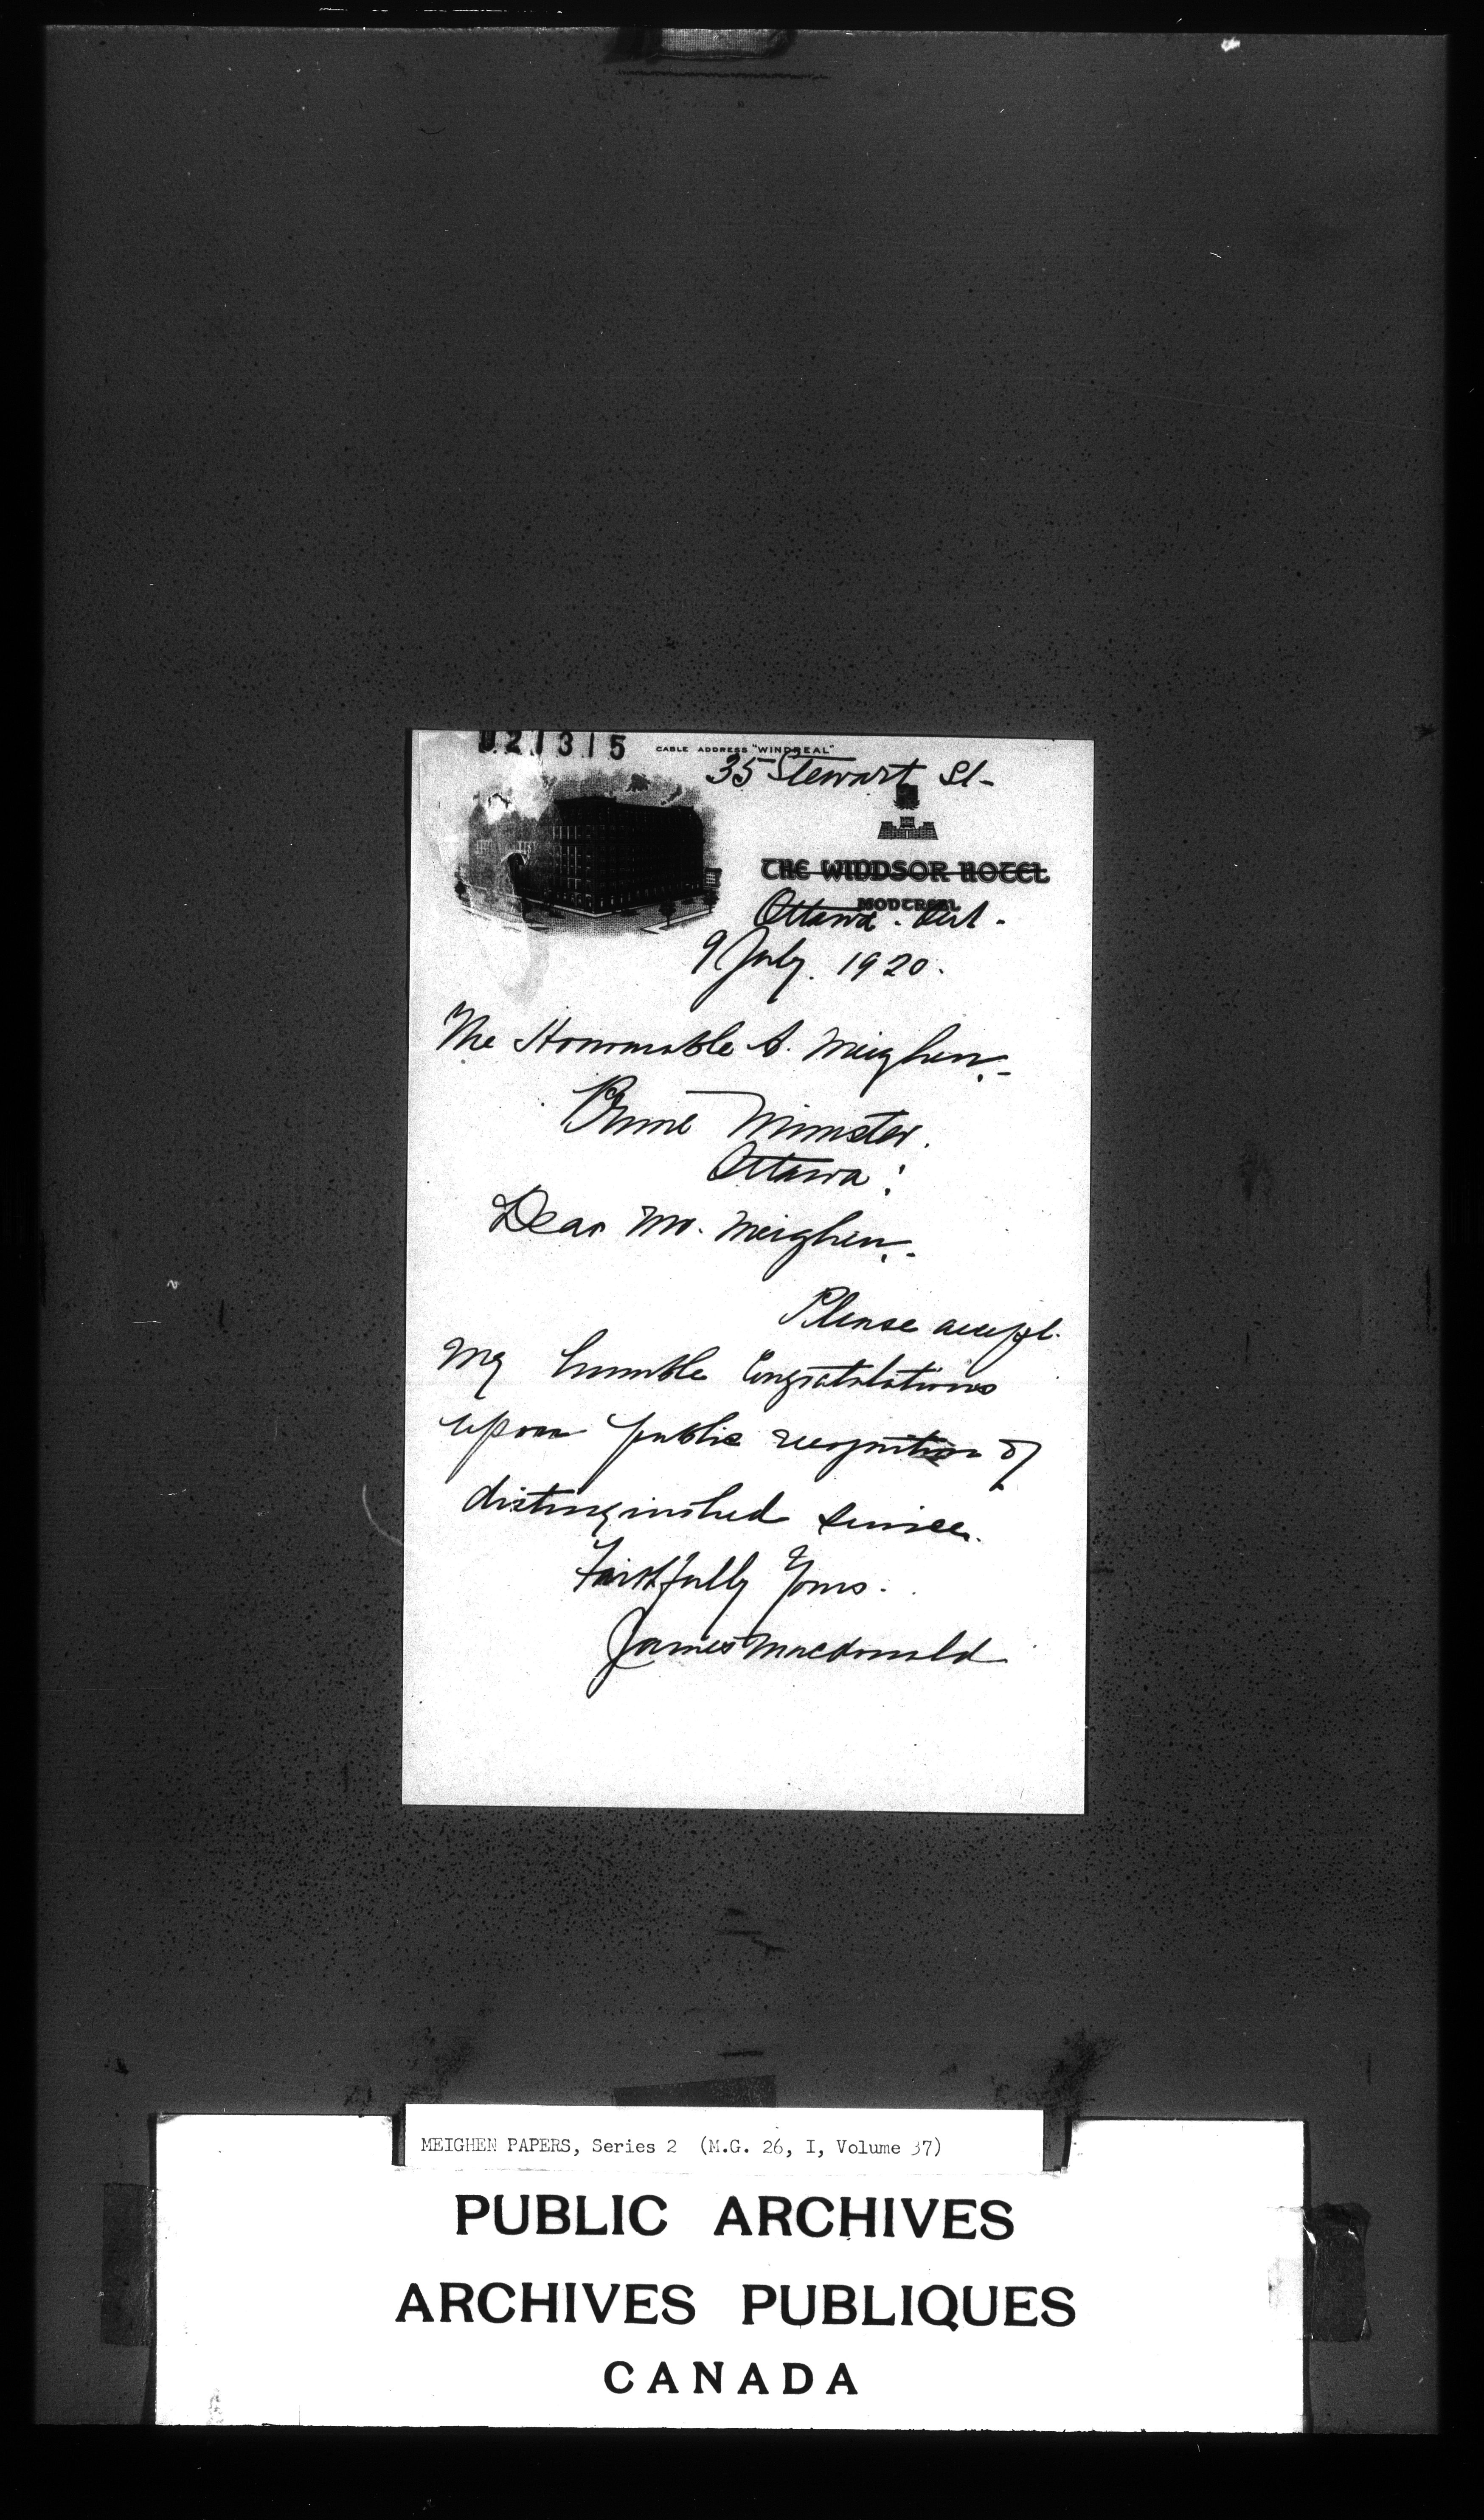 021315
CABLE ADDRESS "WINDREAL"
35 Stewart St-
THE WINDSOR HOTEL
MONTREAL
Ottawa. Ont.
9 July. 1920.
The Honourable A. Meighen.-
Prime Minister.
Ottawa:
Dear Mr. Meighen.-
Please accept.
My humble Congratulations
upon public recognition of
distinguished services.
Faithfully Yours.
James Macdonald
MEIGHEN PAPERS, Series 2 (M.G. 26, I, Volume 37)
PUBLIC ARCHIVES
ARCHIVES PUBLIQUES
CANADA